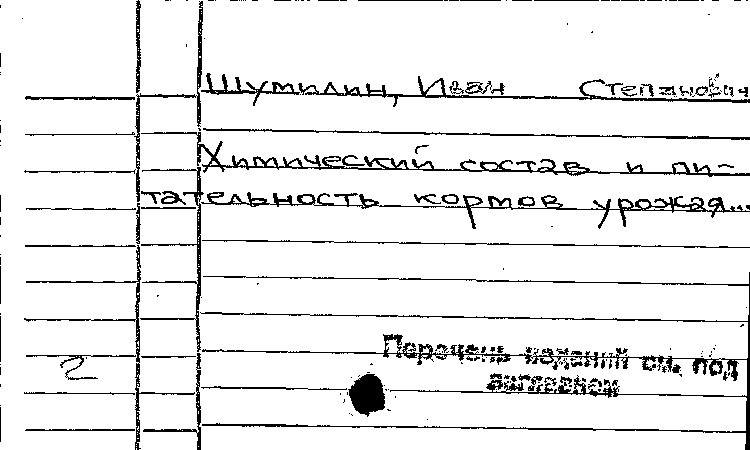 Шумилин, Иван Степанович
Химический состав и пи-
тательность кормов урожая...
Перечень изданий см. под
заглавием
2